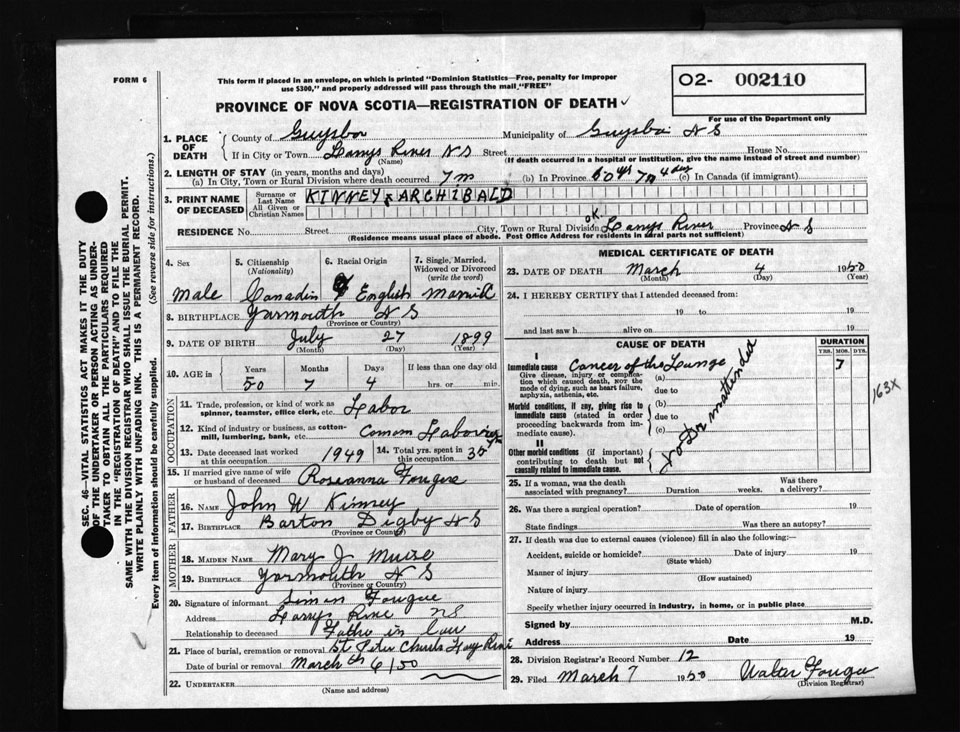 FORM 6
This form if placed in an envelope, on which is printed "Dominion Statistics—Free, penalty for improper
use $300," and properly addressed will pass through the mail "FREE"
O2- 002110
For use of the Department only
PROVINCE OF NOVA SCOTIA—REGISTRATION OF DEATH
1. PLACE OF DEATH
County of Guysboro Municipality of Guysboro N S
If in City or Town Larrys River N S Street House No.
(Name) (If death occurred in a hospital or institution, give the name instead of street and number)
2. LENGTH OF STAY (in years, months and days)
(a) In City, Town or Rural Division where death occurred 7 m (b) In Province 50 yrs 7 m 4 days (c) In Canada (if immigrant)
3. PRINT NAME OF DECEASED
Surname or Last Name KINNEY ARCHIBALD
All Given or Christian Names
RESIDENCE No. Street City, Town or Rural Division OK Larrys River Province N S
(Residence means usual place of abode. Post Office Address for residents in rural parts not sufficient)
4. Sex Male
5. Citizenship (Nationality) Canadin
6. Racial Origin English
7. Single, Married, Widowed or Divorced (write the word) Married
8. BIRTHPLACE Yarmouth N S
(Province or Country)
9. DATE OF BIRTH July 27 1899
(Month) (Day) (Year)
10. AGE in Years Months Days If less than one day old
50 7 4 hrs. or min.
OCCUPATION
11. Trade, profession or kind of work as spinner, teamster, office clerk, etc. Labor
12. Kind of industry or business, as cotton-mill, lumbering, bank, etc. Comom Laborer
13. Date deceased last worked at this occupation 1949
14. Total yrs. spent in this occupation 35 yrs
15. If married give name of wife or husband of deceased Roseanna Fougere
FATHER
16. NAME John W Kinney
17. BIRTHPLACE Barton Digby N S
(Province or Country)
MOTHER
18. MAIDEN NAME Mary J Muise
19. BIRTHPLACE Yarmouth N S
(Province or Country)
20. Signature of informant Simon Fougere
Address Larrys River N S
Relationship to deceased Father in law
21. Place of burial, cremation or removal St. Peter Church Larry River
Date of burial or removal March 6/50
22. UNDERTAKER
(Name and address)
MEDICAL CERTIFICATE OF DEATH
23. DATE OF DEATH March 4 1950
(Month) (Day) (Year)
24. I HEREBY CERTIFY that I attended deceased from:
19 to 19
and last saw h alive on 19
CAUSE OF DEATH
DURATION
YRS. MOS. DYS.
I
Immediate cause Cancer of the Lunge 7
Give disease, injury or complication which caused death, not the mode of dying, such as heart failure, asphyxia, asthenia, etc.
(a)
due to
Morbid conditions, if any, giving rise to immediate cause (stated in order proceeding backwards from immediate cause).
(b)
due to
(c)
II
Other morbid conditions (if important) contributing to death but not causally related to immediate cause.
no Dr. in attended
163X
25. If a woman, was the death associated with pregnancy? Duration weeks. Was there a delivery?
26. Was there a surgical operation? Date of operation 19
State findings Was there an autopsy?
27. If death was due to external causes (violence) fill in also the following:—
Accident, suicide or homicide? Date of injury 19
(State which)
Manner of injury
(How sustained)
Nature of injury
Specify whether injury occurred in industry, in home, or in public place
Signed by M.D.
Address Date 19
28. Division Registrar's Record Number 12
29. Filed March 7 1950 Walter Fougere
(Division Registrar)
SEC. 46—VITAL STATISTICS ACT MAKES IT THE DUTY
OF THE UNDERTAKER OR PERSON ACTING AS UNDER-
TAKER TO OBTAIN ALL THE PARTICULARS REQUIRED
IN THE "REGISTRATION OF DEATH" AND TO FILE THE
SAME WITH THE DIVISION REGISTRAR WHO SHALL ISSUE THE BURIAL PERMIT.
WRITE PLAINLY WITH UNFADING INK. THIS IS A PERMANENT RECORD.
Every item of information should be carefully supplied. (See reverse side for instructions.)